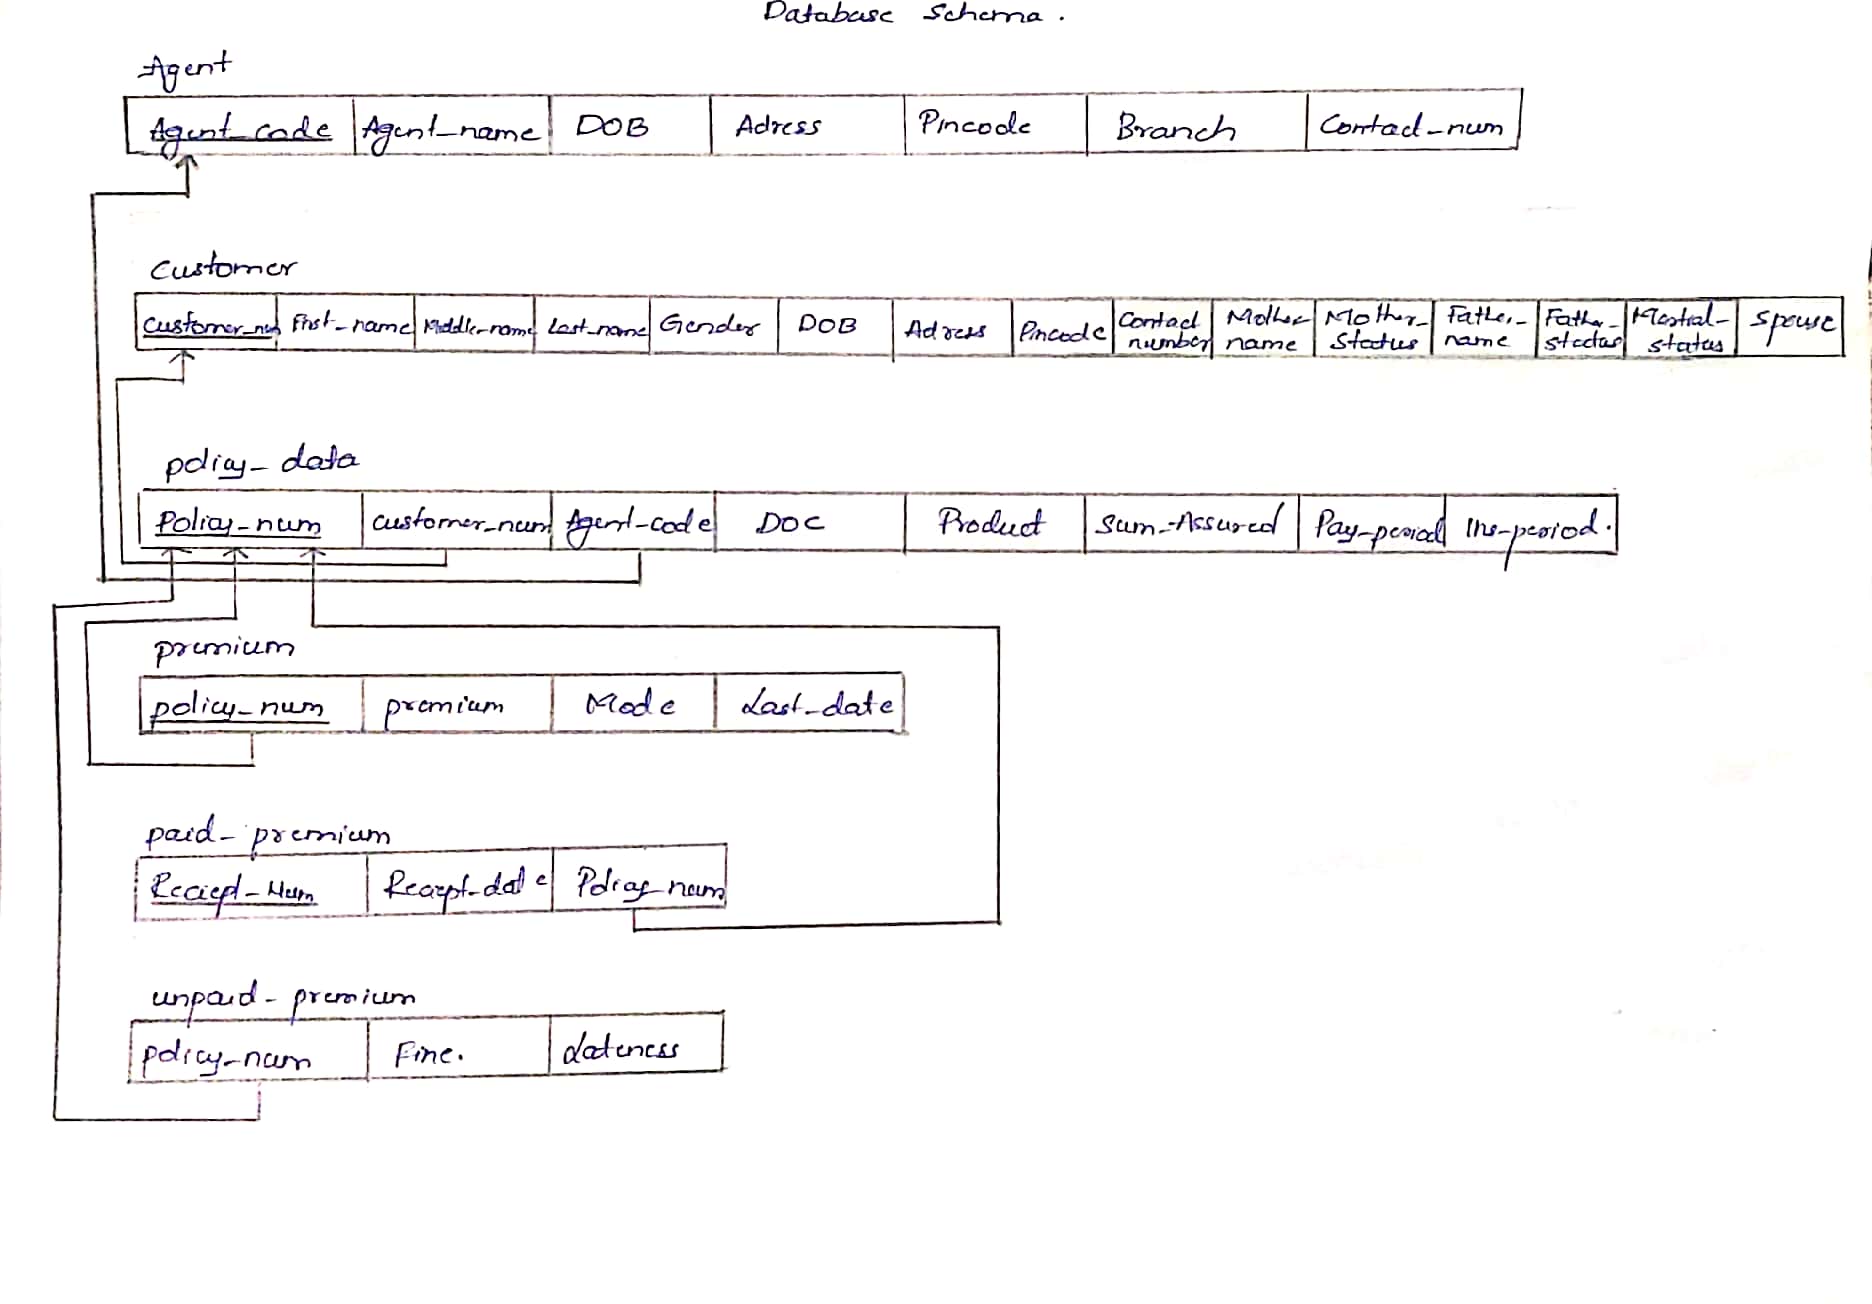 Database Schema.
Agent
Agent_code Agent_name DOB Adress Pincode Branch Contact_num
Customer
Customer_num First_name Middle_name Last_name Gender DOB Adress Pincode Contact number Mother name Mother_ Status Father_ name Father_ status Marital_ status Spouse
policy_data
Policy_num customer_num Agent_code DOC Product Sum_Assured Pay_period Ins_period.
premium
policy_num premium Mode Last_date
paid_premium
Reciept_Num Reciept_date Policy_num
unpaid_premium
policy_num Fine. Lateness